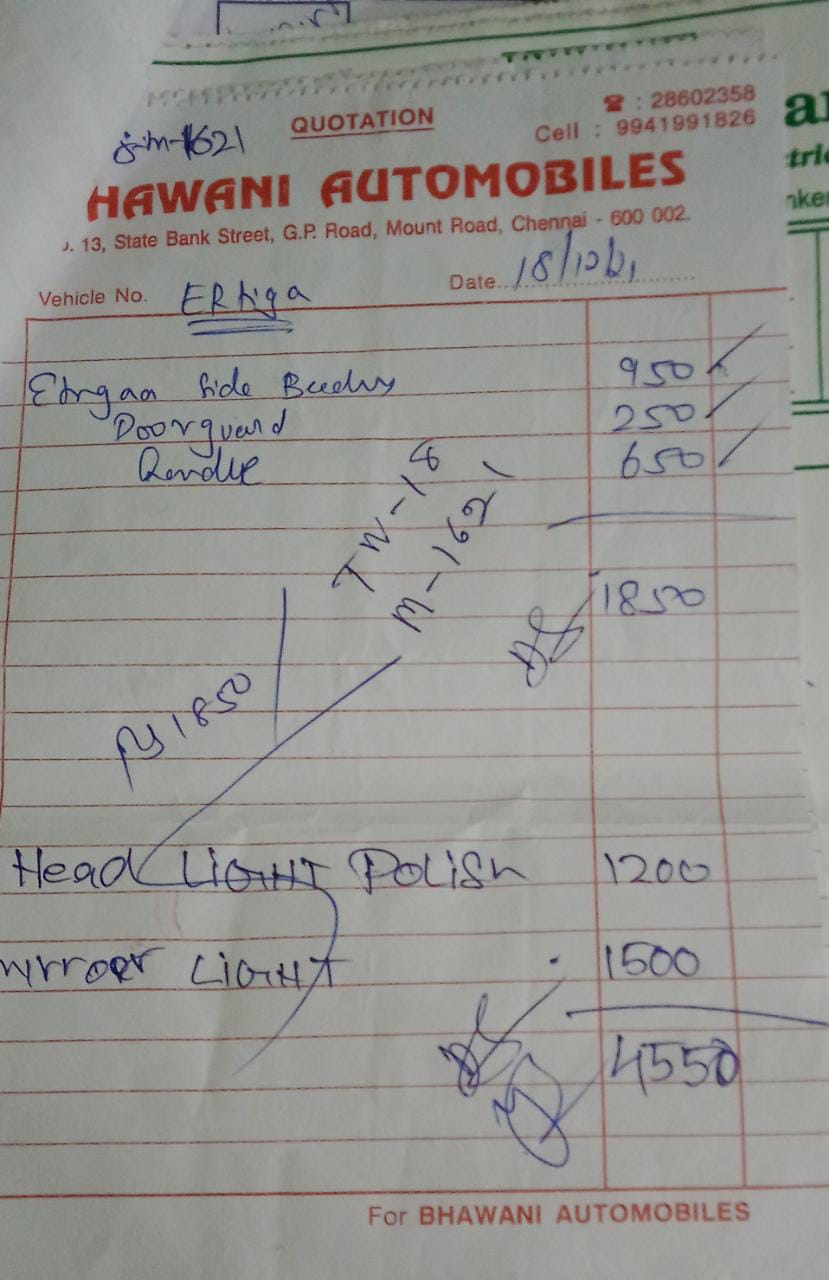 QUOTATION
☎ : 28602358
Cell : 9941991826
M-1621
HAWANI AUTOMOBILES
. 13, State Bank Street, G.P. Road, Mount Road, Chennai - 600 002.
Vehicle No. ERtiga
Date.. 18/12/21
Side 950
Doorguard 250
650
TN-18
M-1621
1850
Rs 1850
Head LIGHT POLISH 1200
Mirroer LIGHT 1500
4550
For BHAWANI AUTOMOBILES